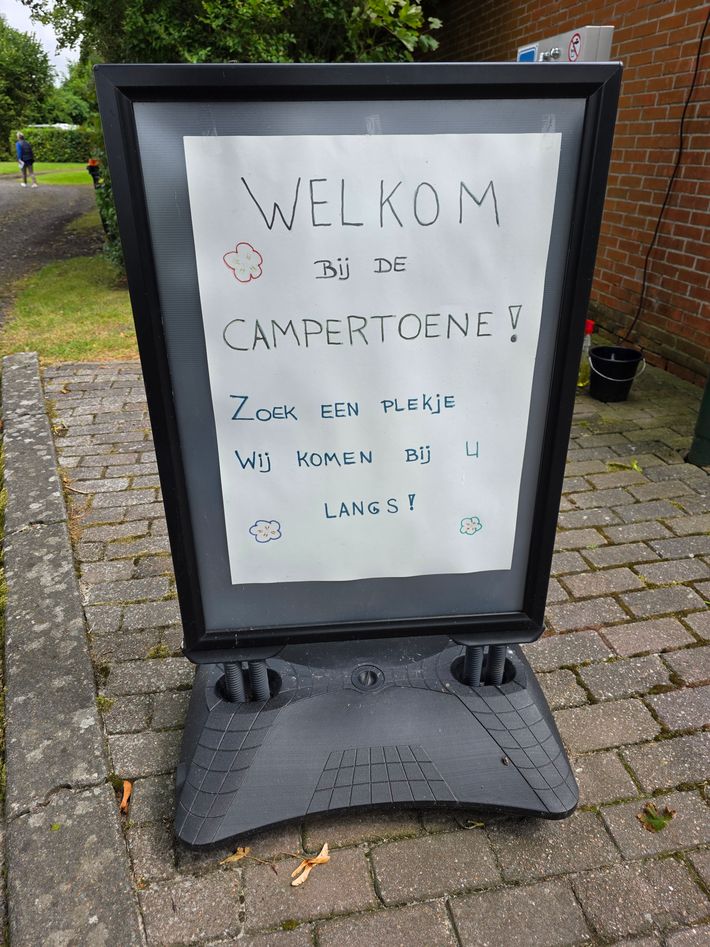 WELKOM
Bij DE
CAMPERTOENE!
ZOEK EEN PLEKJE
Wij KOMEN Bij U
LANGS!